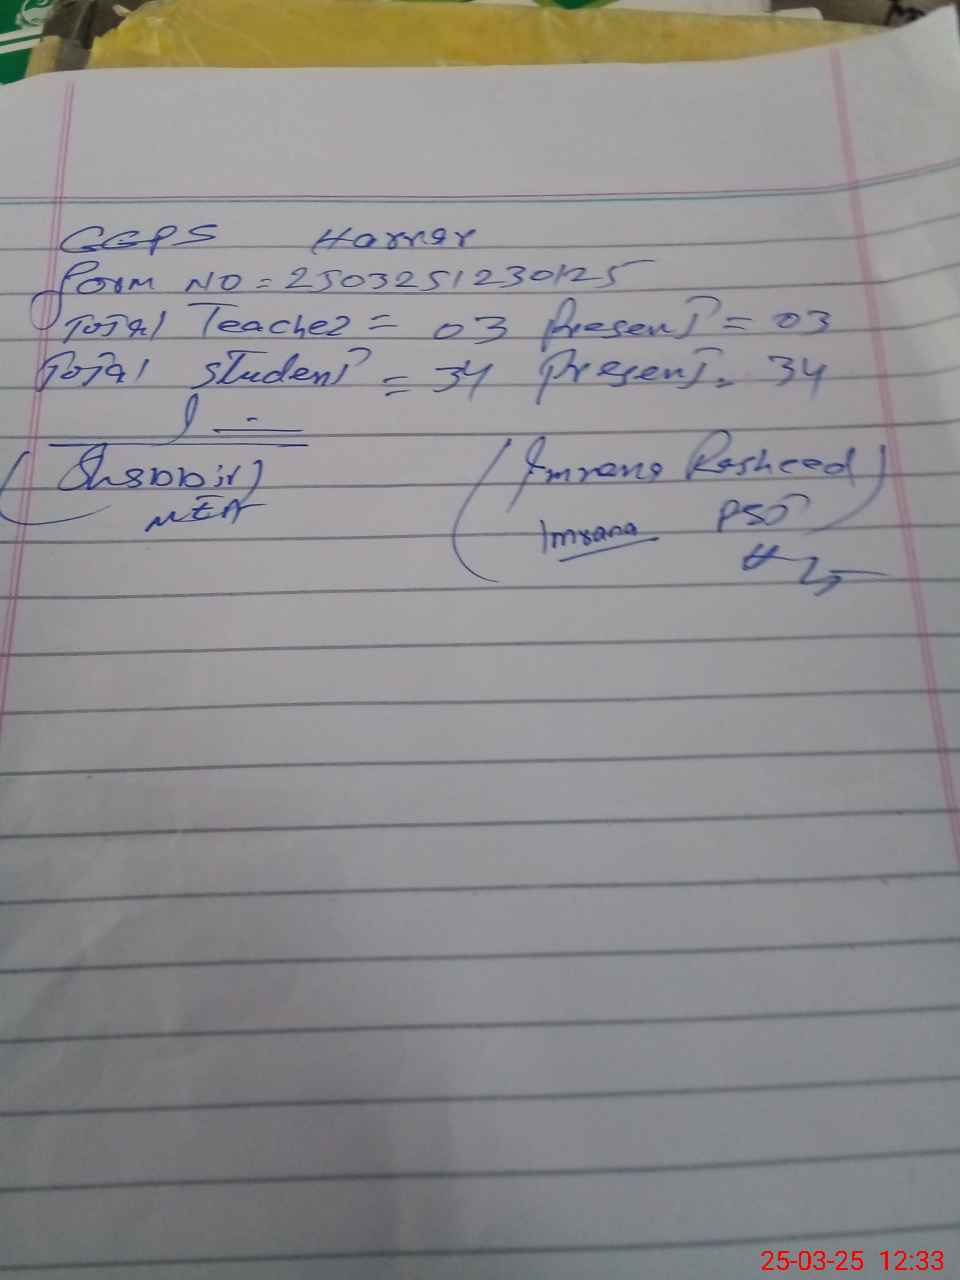 GGPS Harrar
Form NO = 2503251230125
Total Teacher = 03 Present = 03
Total student = 34 Present = 34
(Shabbir)
MEA
(Imrana Rasheed)
Imrana PST
25-03-25 12:33